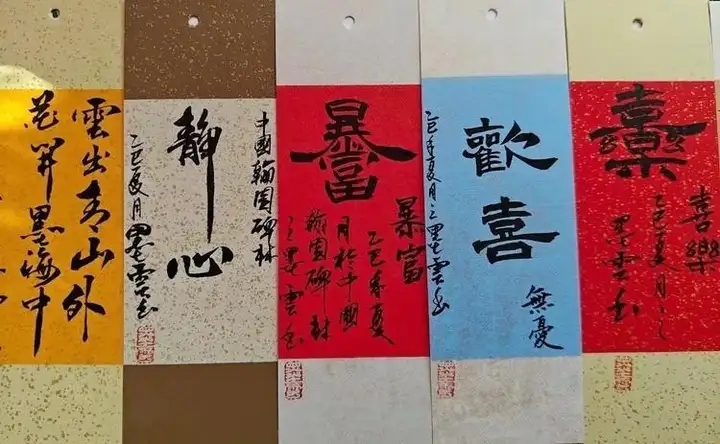 雲出青山外
花開墨海中
中國翰園碑林
静心
乙巳夏月墨雲書
暴富
暴富
乙巳年夏
月於中國
翰園碑林
之墨雲書
歡喜
無憂
乙巳年夏月之墨雲書
喜樂
喜樂
乙巳夏月之
墨雲書